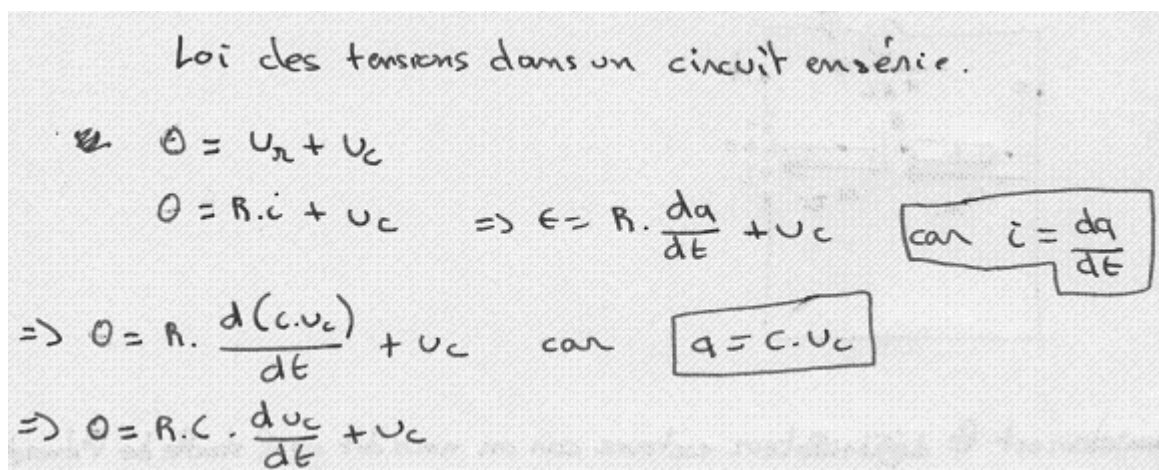 Loi des tensions dans un circuit en série.
0 = Ur + Uc
0 = R.i + Uc => E = R. dq/dt + Uc car i = dq/dt
=> 0 = R. d(C.Uc)/dt + Uc car q = C.Uc
=> 0 = R.C. dUc/dt + Uc